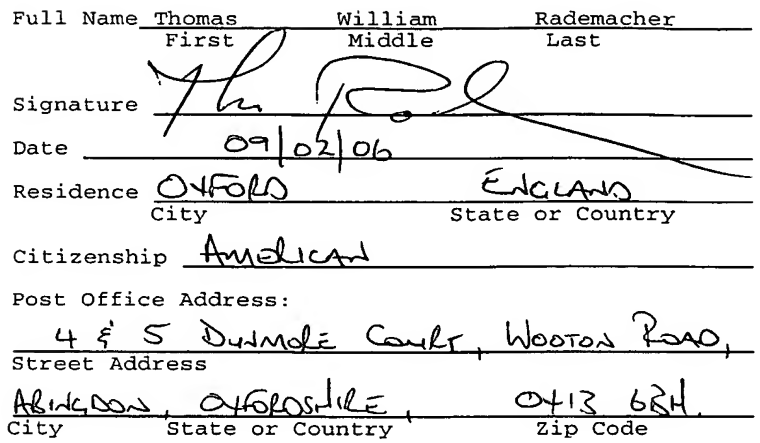 Full Name Thomas William Rademacher
First Middle Last
Signature
Date 09/02/06
Residence OXFORD ENGLAND
City State or Country
Citizenship AMERICAN
Post Office Address:
4 & 5 DUNMORE COURT, WOOTON ROAD,
Street Address
ABINGDON, OXFORDSHIRE, OX13 6BH.
City State or Country Zip Code